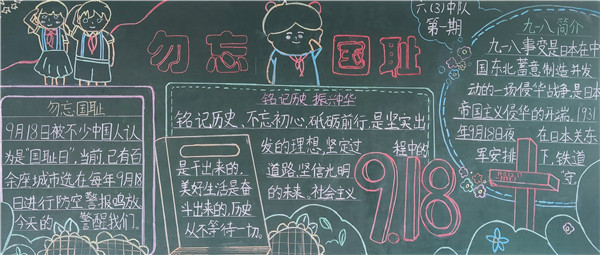 六(3)中队
第一期
勿忘国耻
勿忘国耻
9月18日被不少中国人认
为是"国耻日"，当前，已有百
余座城市选在每年9月18
日进行防空警报鸣放
今天的 警醒我们。
铭记历史 振兴中华
铭记历史、不忘初心、砥砺前行，是坚实出
发的理想，坚定过 程中的
道路，坚信光明
的未来，社会主义
是干出来的，
美好生活是奋
斗出来的，历史
从不等待一切。
9.18
九一八简介
九一八事变是日本在中
国东北蓄意制造并发
动的一场侵华战争，是日本
帝国主义侵华的开端，1931
年9月18日夜 在日本关东
军安排 下，铁道
守